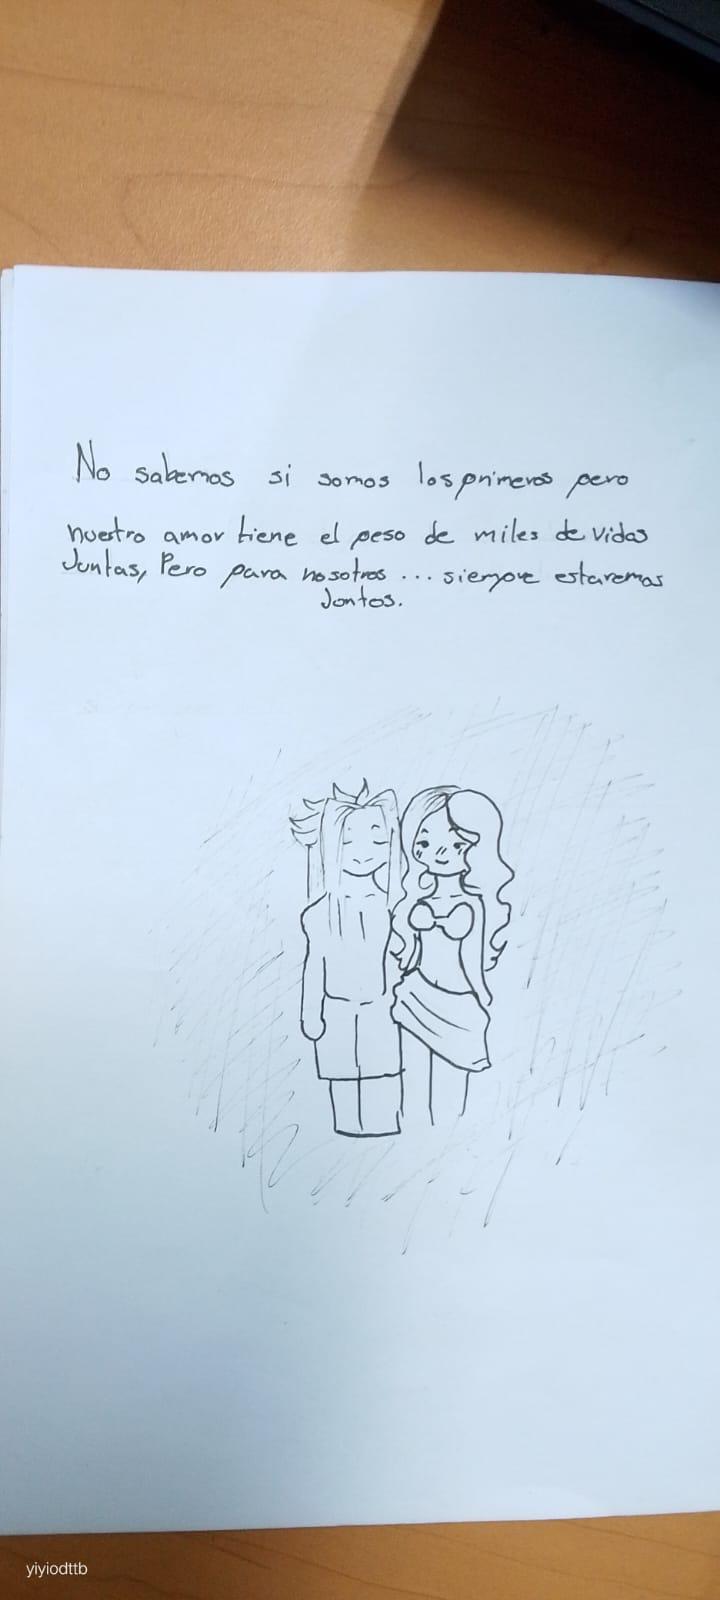 No sabemos si somos los primeros pero
nuestro amor tiene el peso de miles de vidas
Juntas, Pero para nosotros ... siempre estaremos
Juntos.
yiyiodttb